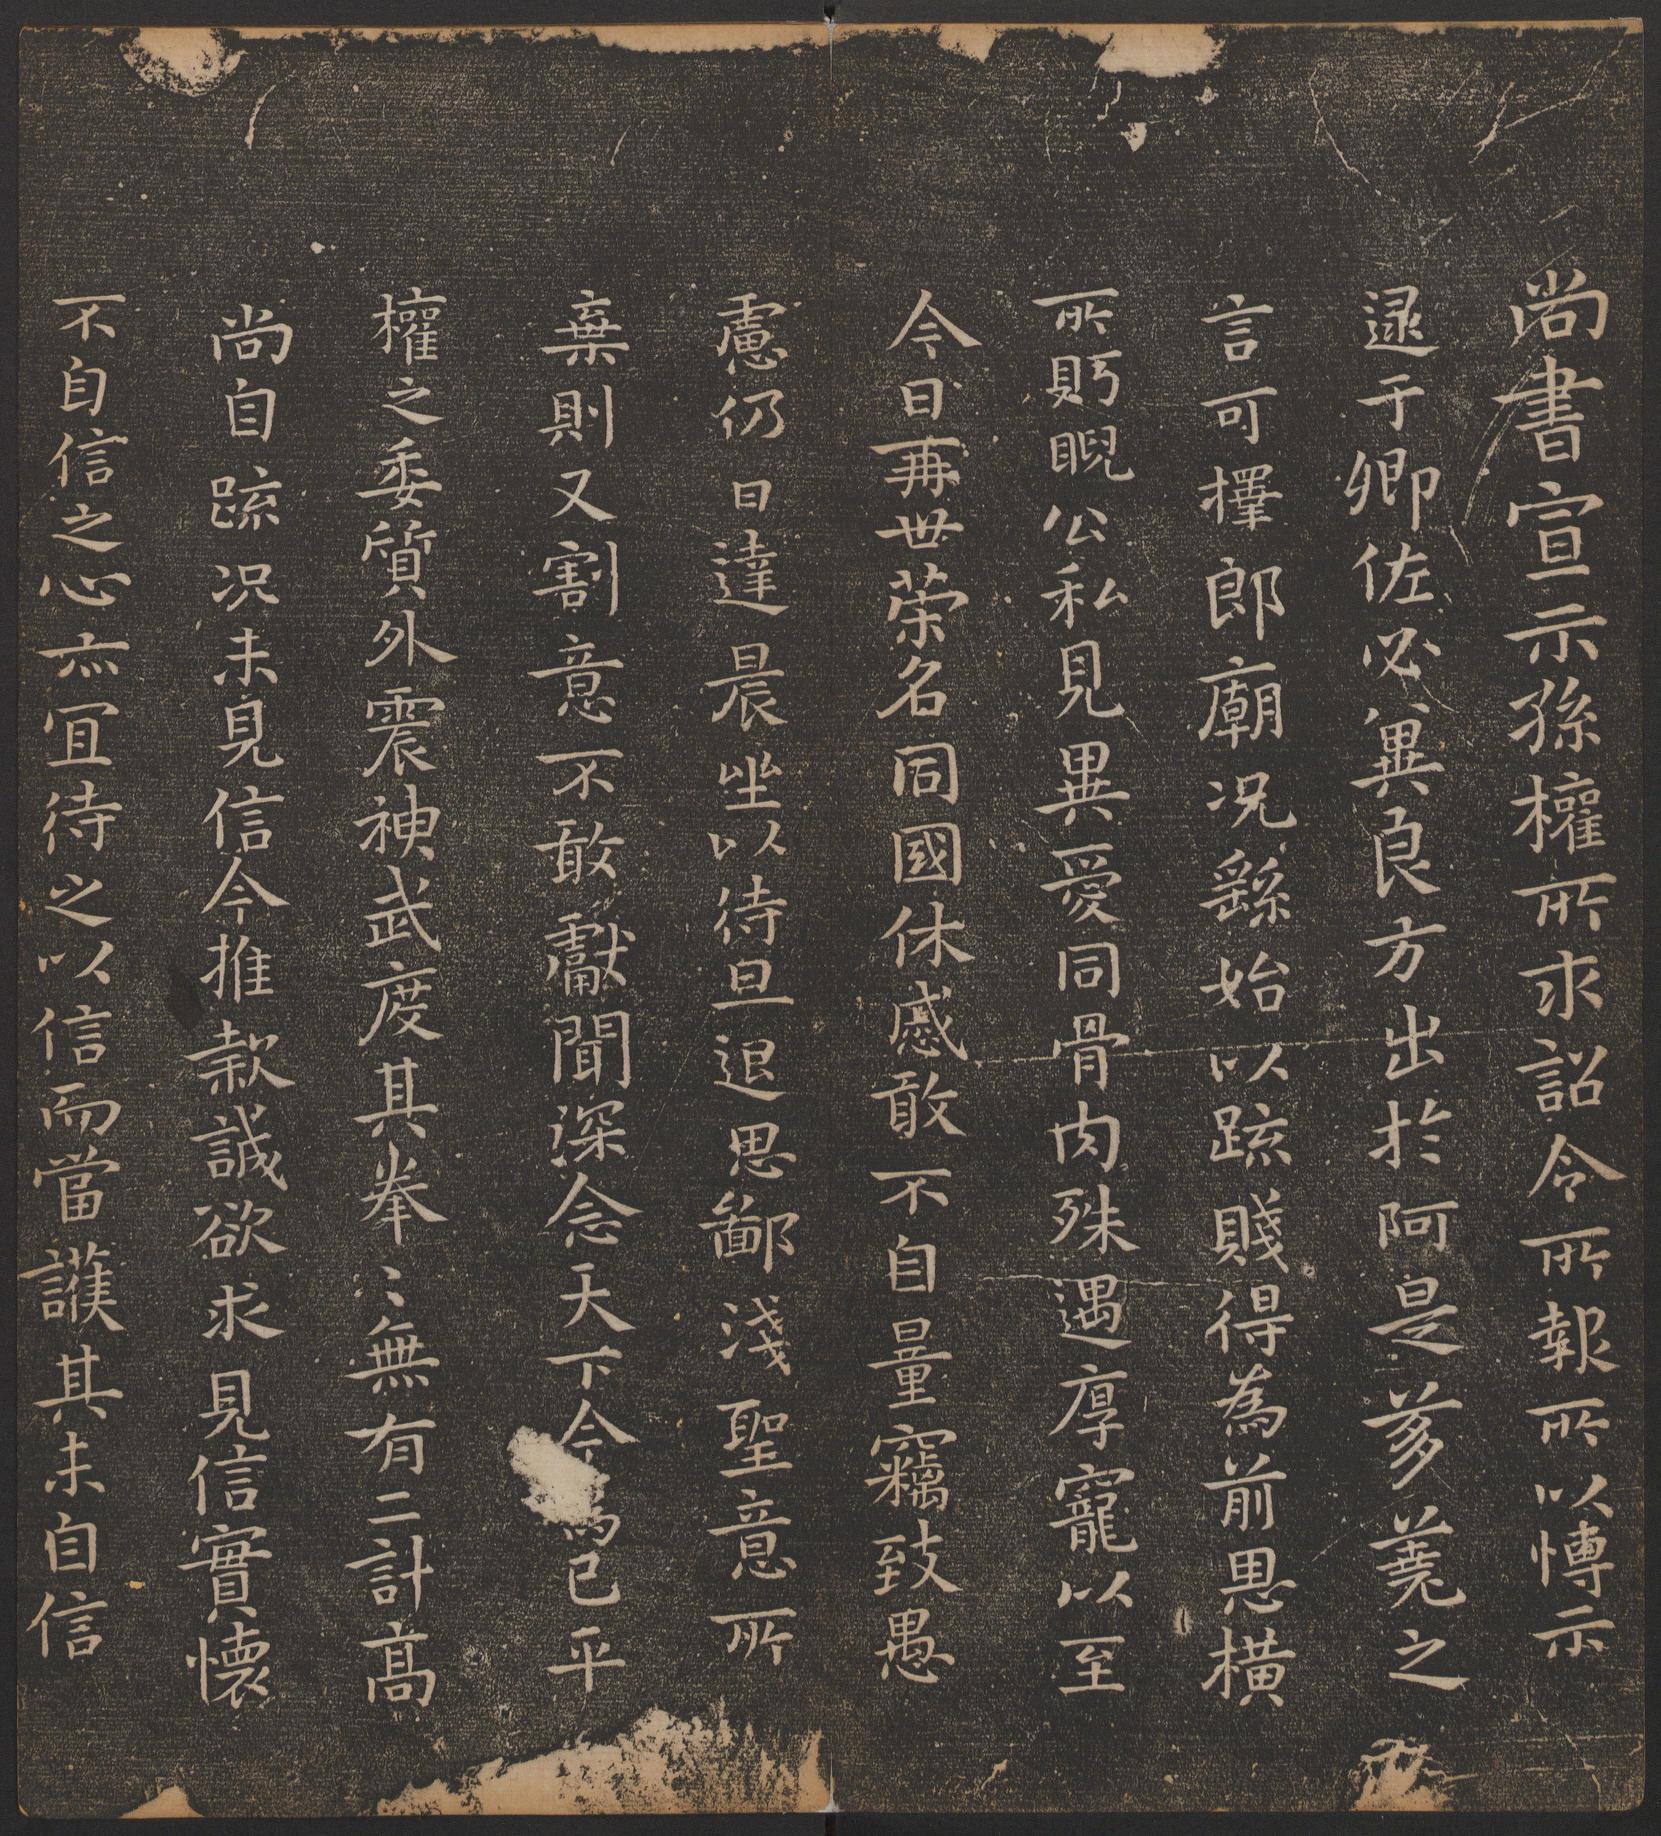 尚書宣示孫權所求詔令所報所以慱示
逯于卿佐必異良方出於阿是芻蕘之
言可擇郎廟況繇始以踈賤得為前恩橫
所䀢睨公私見異愛同骨肉殊遇厚寵以至
今日再世榮名同國休慼敢不自量竊致愚
慮仍日達晨坐以待旦退思鄙淺聖意所
棄則又割意不敢獻聞深念天下今為已平
權之委質外震神武度其拳〻無有二計高
尚自踈況未見信今推款誠欲求見信實懷
不自信之心亦宜待之以信而當護其未自信